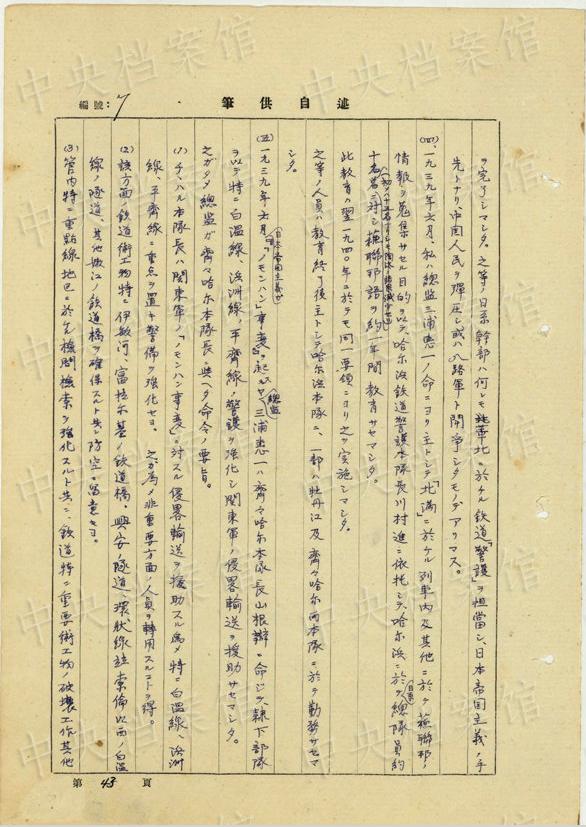 編號：7
筆供自述
ヲ完了シマシタ。之等ノ日系幹部ハ何レモ華北ニ於ケル鉄道「警護」ヲ担当シ、日本帝国主義ノ手
先トナリ、中国人民ヲ弾圧シ或ハ八路軍ト闘争シタモノデアリマス。
(四)、一九三九年六月、私ハ総監三浦恵一ノ命ニヨリ主トシテ「北満」ニ於ケル列車内及其他ニ於テ蘇聯邦ノ
情報ヲ蒐集サセル目的ヲ以テ、哈尔浜鉄道警護本隊長川村進ニ依托シテ、哈尔浜ニ於テ(日系)総隊員約
十名ニ対シ蘇聯邦語ヲ約一年間教育サセマシタ。
此教育ハ翌一九四〇年ニ於テモ同一要領ニヨリ之ヲ実施シマシタ。
之等ノ人員ハ教育終了後主トシテ哈尔浜本隊ニ、一部ハ牡丹江及齊々哈尔両本隊ニ於テ勤務サセマ
シタ。
(五)一九三九年六月、(日本帝国主義ガ)「ノモンハン」事変ヲ起スヤ、総監三浦恵一ハ齊々哈尔本隊長山根辯ニ命ジテ、隷下部隊
ヲ以テ特ニ白温線、浜洲線、平齊線ノ警護ヲ強化シ関東軍ノ侵畧輸送ヲ援助サセマシタ。
之ガタメ總監ガ齊々哈尔本隊長ニ與ヘタ命令ノ要旨。
(1) チハル本隊長ハ関東軍ノ「ノモンハン事変」ニ対スル侵畧輸送ヲ援助スル為メ特ニ白温線、浜洲
線、平齊線ニ重点ヲ置キ警備ヲ強化セヨ。之ガ為メ非重要方面ノ人員ヲ轉用スルコトヲ得。
(2) 該方面ノ鉄道術工物特ニ伊敏河、富拉尔基ノ鉄道橋、興安ノ隧道、環状線並索倫以西ノ白温
線ノ隧道、其他嫩江ノ鉄道橋ヲ確保スルト共ニ防空ニ留意セヨ。
(3) 管内特ニ重點線地区ニ於ケル機関検索ヲ強化スルト共ニ、鉄道特ニ重要術工物ノ破壊工作其他
第 43 頁